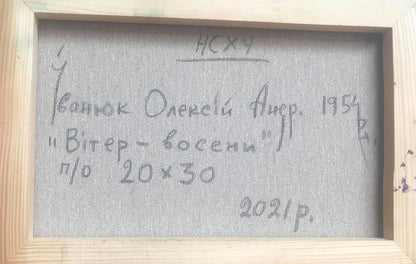 НСХУ
Іванюк Олексій Андр. 1954 р.
"Вітер - восени"
п/о 20×30
2021р.